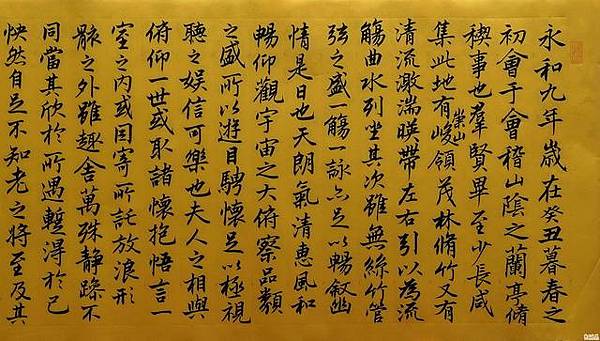 永和九年歲在癸丑暮春之
初會于會稽山陰之蘭亭脩
稧事也羣賢畢至少長咸
集此地有崇山峻領茂林脩竹又有
清流激湍暎帶左右引以為流
觴曲水列坐其次雖無絲竹管
弦之盛一觴一詠亦足以暢敘幽
情是日也天朗氣清惠風和
暢仰觀宇宙之大俯察品類
之盛所以遊目騁懷足以極視
聽之娛信可樂也夫人之相與
俯仰一世或取諸懷抱悟言一
室之內或因寄所託放浪形
骸之外雖趣舍萬殊靜躁不
同當其欣於所遇暫得於己
怏然自足不知老之將至及其